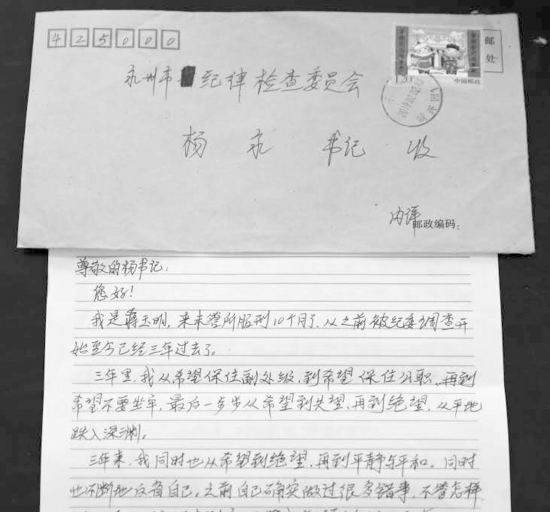 425000
邮
处
中国邮政
永州市 纪律检查委员会
杨 永 书记 收
内详
邮政编码:
尊敬的杨书记:
您好!
我是蒋玉明,来 所服刑10个月了,从之前被纪委调查开
始至今已经三年过去了。
三年里,我从希望保住副处级,到希望保住公职,再到
希望不要坐牢,最后一步步从希望到失望,再到绝望,从平地
跌入深渊。
三年来,我同时也从希望到绝望,再到平静与平和。同时
也不断地反省自己。之前自己确实做过很多错事,不管怎样